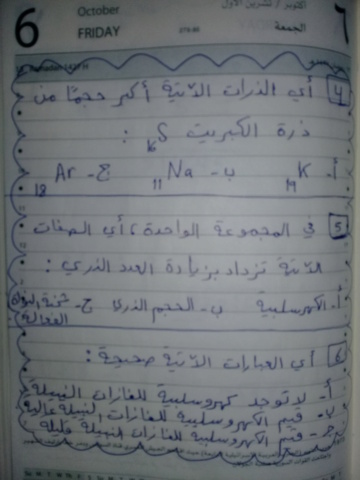 6
October
FRIDAY
279-86
أكتوبر / تشرين الأول
الجمعة
٦
4 أي الذرات الآتية أكبر حجمًا من
ذرة الكبريت 16S :
أ- 19K ب- 11Na ج- 18Ar
5 في المجموعة الواحدة، أي الصفات
الآتية تزداد بزيادة العدد الذري :
أ- الكهرسلبية ب- الحجم الذري ج- شحنة النواة
الفعالة
6 أي العبارات الآتية صحيحة :
أ- لا توجد كهروسلبية للغازات النبيلة
ب- قيم الكهروسلبية للغازات النبيلة عالية
ج- قيم الكهروسلبية للغازات النبيلة قليلة